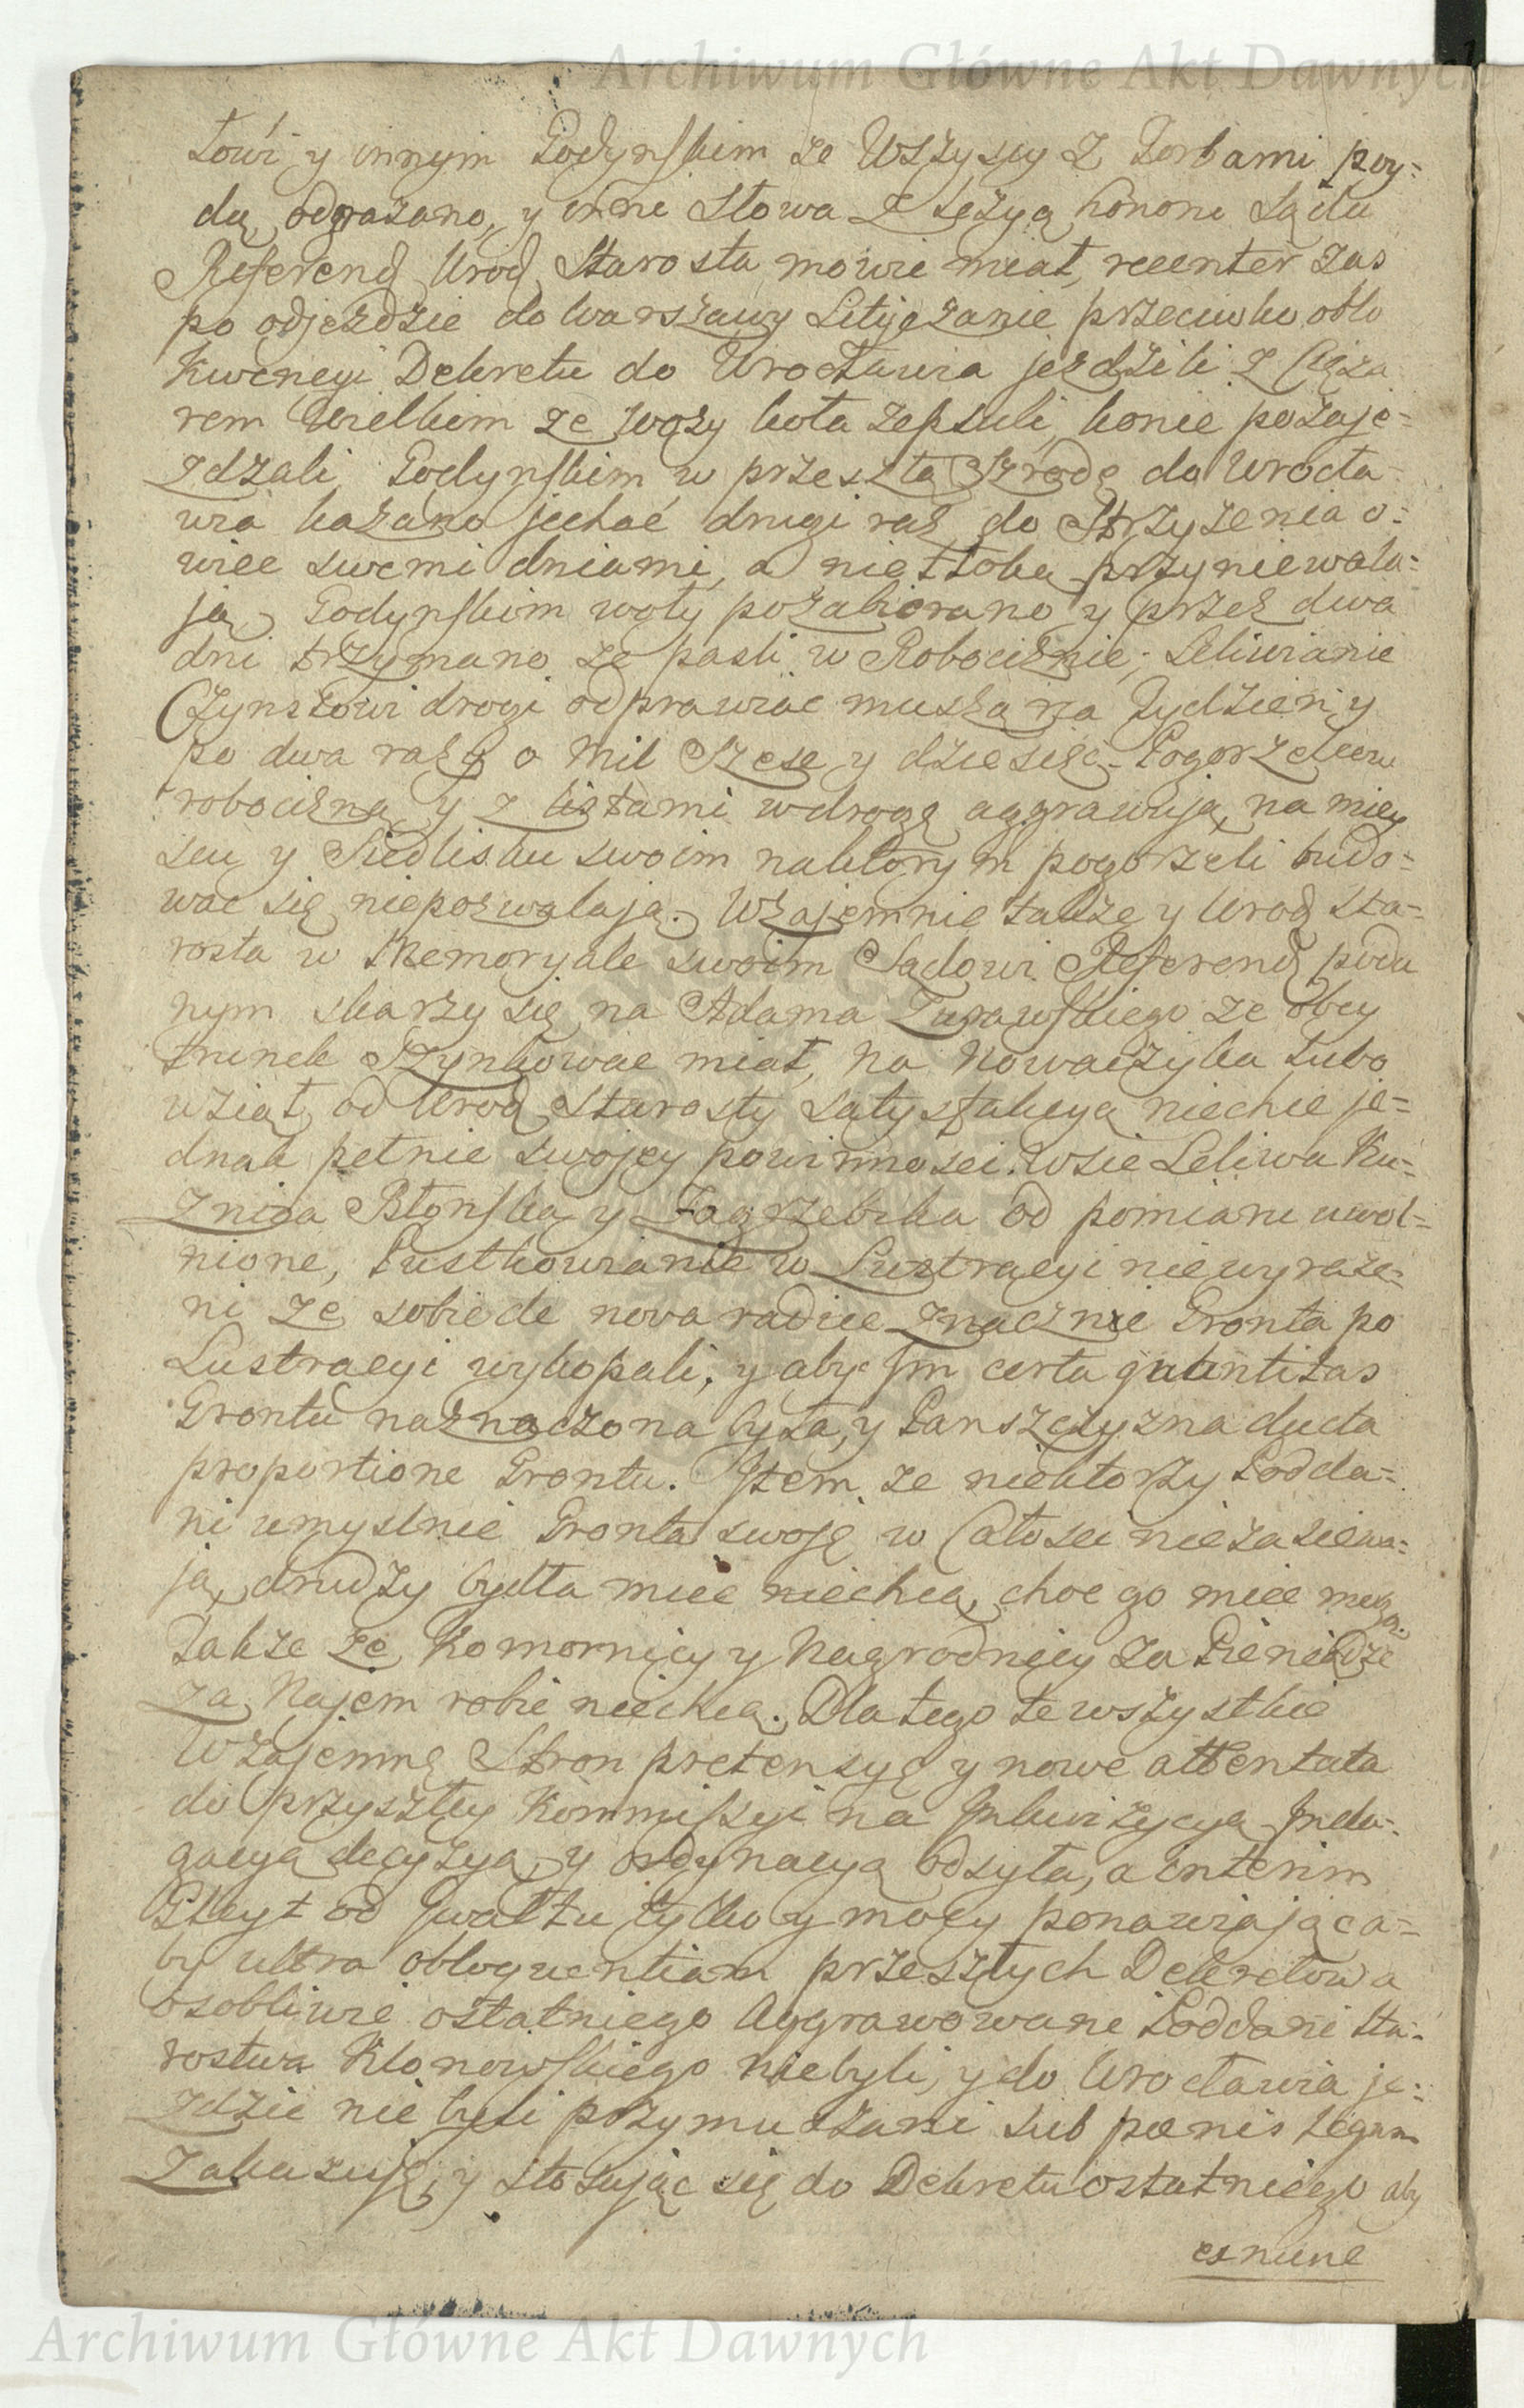 Archiwum Główne Akt Dawnych
łowi y innym Godynskim ze Wszyscy z Torbami poy=
dą, odgrażano, y inne Słowa z lezyą honoru Sądu
Referend Urod Starosta mowić miał, recenter zas
po odjeździe do Warszawy Litygżanie przeciwko oblo
kwencyi Dekretu do Wrocławia jezdzili z Cięża
rem Wielkim ze wozy koła zepsuli, konie pozaje=
zdzali, Godynskim w przeszłą Szrodę do Wrocła=
wia kazano jechać drugi raz, do Strzyżenia o=
wiec swemi dniami, a nie tłoką przyniewala=
ją, Godynskim woły pozabierano y przez dwa
dni trzymano ze pasli w Robociznie; Leliwianie
Czynszowi drogi odprawiać muszą na Tydzien y
po dwa razy o Mil Szesc y dziesięć. Pogorzelcow
robocizną y z listami w drogę aggrawują, na miey
scu y Siedlisku swoim na ktorym pogorzeli budo=
wac się niepozwalają. Wzajemnie także y Urod Sta=
rosta w Memoryale swoim Sądowi Referend poda
nym skarzy się na Adama Zurawskiego ze obcy
trunek Szynkowac miał, Na Nowaczyka lubo
wziął od Urod Starosty satysfakcyą niechce je=
dnak pełnic swojey powinnosci. Wsie Leliwa Ku=
znica Błonska y Zagrzebska od pomiaru uwol=
nione, Pustkowianie w Lustracyi niewyraże=
ni ze sobie de nova radice znacznie Gronta po
Lustracyi wykopali, y aby Im certa quantitas
Grontu naznaczona była, y Panszczyzna ducta
proportione Grontu. Item ze niektorzy Podda=
ni umyslnie Gronta swoje w Całosci niezasiewa=
ją, drudzy bydła miec niechcą, choc go miec mogą.
Także ze Komornicy y Nagrodnicy za Pieniądze
za Najem robic niechcą. Dla tego te wszystkie
Wzajemne Stron pretensye y nowe attentata
do przyszłey Kommissyi na Inkwizycyą Inda=
gacyą decyzyą, y ordynacyą odsyła, a interim
Gleyt od Gwałtu tylko y mocy ponawiając a=
by ultra obloquentiam przeszłych Dekretow a
osobliwie ostatniego Aggrawowane Poddani Sta=
rostwa Klonowskiego niebyli, y do Wrocławia je=
zdzic nie byli przymuszani sub pœnis legum
Zakazuje, y stosując się do Dekretu ostatniego aby
ex nunc
Archiwum Główne Akt Dawnych